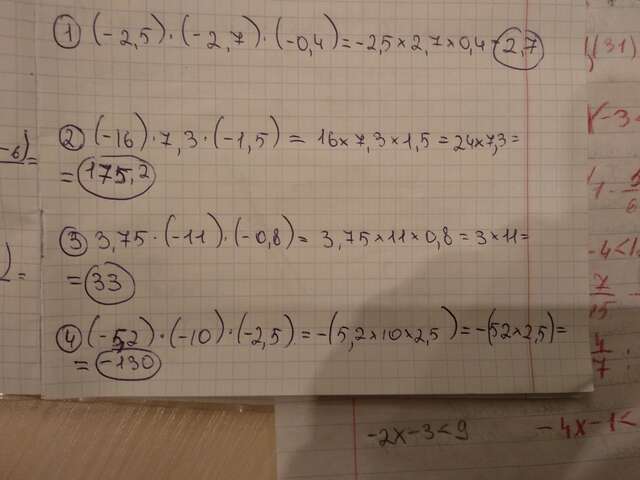 ① (-2,5)·(-2,7)·(-0,4)=-2,5×2,7×0,4=-2,7
② (-16)·7,3·(-1,5)=16×7,3×1,5=24×7,3=
=175,2
③ 3,75·(-11)·(-0,8)=3,75×11×0,8=3×11=
=33
④ (-52)·(-10)·(-2,5)=-(5,2×10×2,5)=-(52×2,5)=
=-130
-2x-3<9
-4x-1<